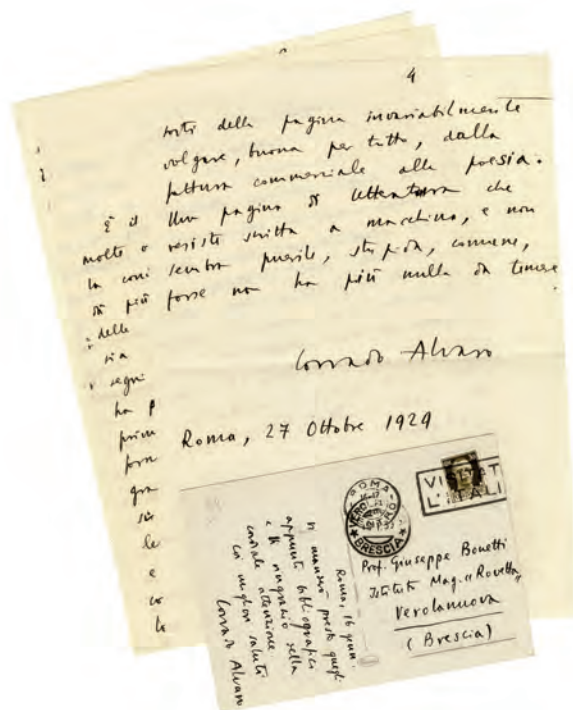 4
sorti della pagina invariabilmente
volgare, buona per tutto, dalla
fattura commerciale alla poesia.
Una pagina di letteratura che
resiste scritta a macchina, e non
sembra puerile, stupida, comune,
forse non ha più nulla da temere
Corrado Alvaro
Roma, 27 Ottobre 1929
È il
molte o
la così
di più
delle
sia
segui
ha p
prim
form
gra
le
e
co
lo
ROMA
VEROLANUOVA
BRESCIA
VISITAT
L'ITALI
Prof. Giuseppe Bonetti
Istituto Mag. "Rovetta"
Verolanuova
(Brescia)
Roma, 16 genn.
vi manderò presto quegli
appunti bibliografici
e vi ringrazio della
cordiale attenzione
coi migliori saluti
Corrado Alvaro